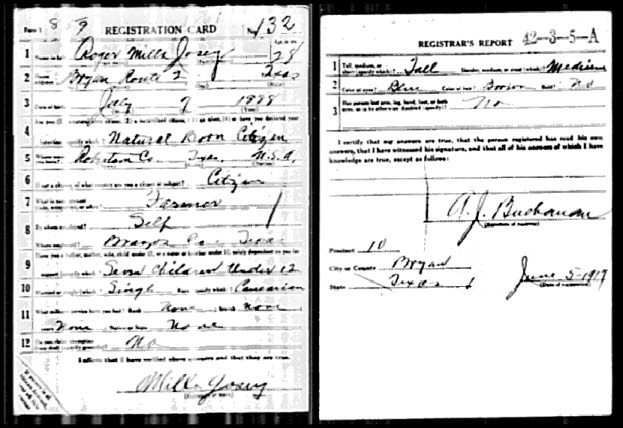 Form 1 8 9 REGISTRATION CARD No. 132
1 Name in full Roger Mills Josey Age in yrs. 28
2 Home address Bryan Route 2 Texas
3 Date of birth July 9 1888
4 Are you (1) a natural-born citizen, (2) a naturalized citizen, (3) an alien, (4) or have you declared your
intention (specify which)? Natural Born Citizen
5 Where were you born? Robertson Co. Texas U.S.A.
6 If not a citizen, of what country are you a citizen or subject? Citizen
7 What is your present trade, occupation, or office? Farmer
8 By whom employed? Self
Where employed? Brazos Co. Texas
9 Have you a father, mother, wife, child under 12, or a sister or brother under 12, solely dependent on you for
support (specify which)? Seven Children Under 12
10 Married or single (which)? Single Race (specify which)? Caucasian
11 What military service have you had? Rank None branch None
years None Nation or State None
12 Do you claim exemption from draft (specify grounds)? No
I affirm that I have verified above answers and that they are true.
Mills Josey
REGISTRAR'S REPORT 42-3-5-A
1 Tall, medium, or short (specify which)? Tall Slender, medium, or stout (which)? Medium
2 Color of eyes? Blue Color of hair? Brown Bald? No
3 Has person lost arm, leg, hand, foot, or both
eyes, or is he otherwise disabled (specify)? No
I certify that my answers are true, that the person registered has read his own
answers, that I have witnessed his signature, and that all of his answers of which I have
knowledge are true, except as follows:
A. J. Buchanan
(Signature of registrar)
Precinct 10
City or County Bryan
State Texas
June 5-1917
(Date of registration)